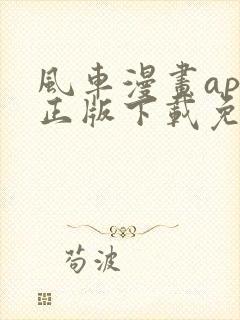 風車漫畫ap
正版下載免
苟波